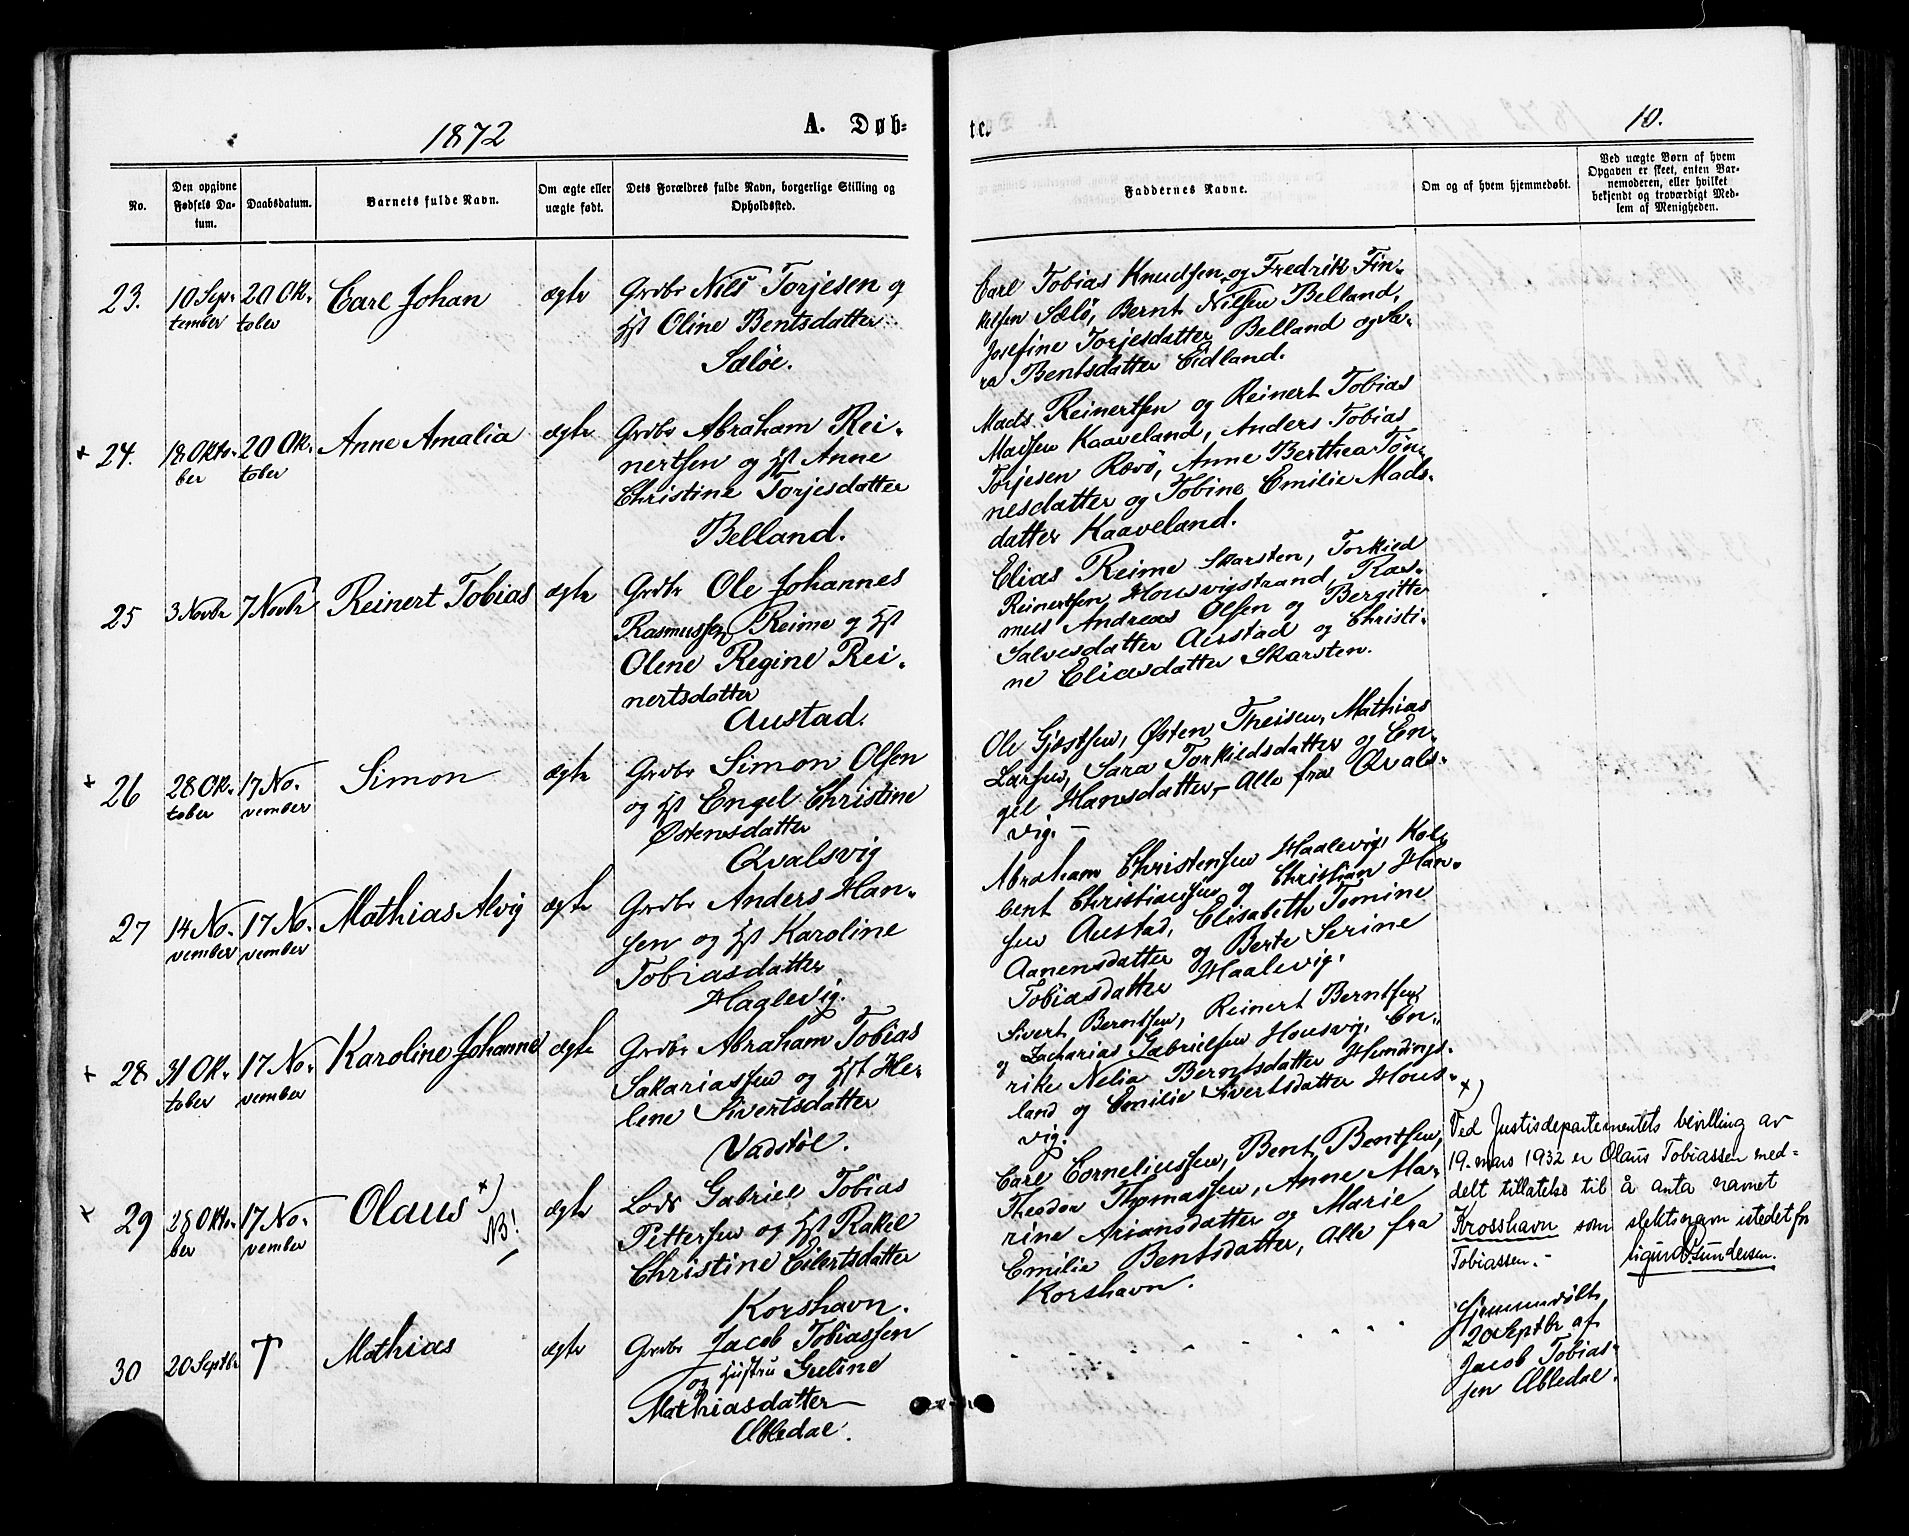 1872
A. Døb-
te.
10.
No.
Den opgivne
Fødsels Da-
tum.
Daabsdatum.
Barnets fulde Navn.
Om ægte eller
uægte født.
Dets Forældres fulde Navn, borgerlige Stilling og
Opholdssted.
Faddernes Navne.
Om og af hvem hjemmedøbt.
Ved uægte Børn af hvem
Opgaven er skeet, enten Bar-
nemoderen, eller hvilket
bekjendt og troværdigt Med-
lem af Menigheden.
23.
10 Sep-
tember
20 Ok-
tober
Carl Johan
ægte
Grdbr Nils Torjesen og
Hst Oline Bentsdatter
Sæløe.
Carl Tobias Knudsen og Fredrik Fin-
kelsen Sælø, Bernt Nilsen Belland,
Josefine Torjesdatter Belland og Sa-
ra Bentsdatter Eidland.
+ 24.
18 Okto-
ber
20 Ok-
tober
Anne Amalia
ægte
Grdbr Abraham Rei-
nertsen og Hst Anne
Christine Torjesdatter
Belland.
Mads Reinertsen og Reinert Tobias
Madsen Kaaveland, Anders Tobias
Torjesen Rævø, Anne Berthea Tøn-
nesdatter og Tobine Emilie Mads-
datter Kaaveland.
25
3 Novbr
7 Novbr
Reinert Tobias
ægte
Grdbr Ole Johannes
Rasmussen Reime og Hst
Olene Regine Rei-
nertsdatter
Austad.
Elias Reime Skarsten, Torkild
Reinertsen Housvigstrand, Ras-
mus Andreas Olsen og Bergitte
Salvesdatter Austad og Christi-
ne Eliasdatter Skarsten.
+ 26
28 Ok-
tober
17 No-
vember
Simon
ægte
Grdbr Simon Olsen
og Hst Engel Christine
Østensdatter
Qvalsvig
Ole Gjestsen, Østen Theisen, Mathias
Larsen, Sara Torkildsdatter og En-
gel Hansdatter,- Alle fra Qvals-
vig. -
27
14 No-
vember
17 No-
vember
Mathias Alvig
ægte
Grdbr Anders Han-
sen og Hst Karoline
Tobiasdatter
Haalevig.
Abraham Christensen Haalevig, Kol-
bent Christiansen og Christian Han-
sen Austad, Elisabeth Tomine
Aanensdatter og Berte Serine
Tobiasdatter Haalevig.
+ 28
31 Ok-
tober
17 No-
vember
Karoline Johanne
ægte
Grdbr Abraham Tobias
Sakariassen og Hst He-
lene Sivertsdatter
Vadstøl.
Sivert Berntsen, Reinert Berntsen
og Zacharias Gabrielsen Housvig, En-
rike Nelia Berntsdatter Hundings-
land og Emilie Sivertsdatter Hous-
vig.
+ 29
28 Okto-
ber
17 No-
vember
Olaus +)
NB!
ægte
Lods Gabriel Tobias
Pettersen og Hst Rakel
Christine Eilertsdatter
Korshavn.
Carl Corneliussen, Bent Bentsen,
Theodor Thomassen, Anne Ma-
rine Ariansdatter og Marie
Emilie Bentsdatter, alle fra
Korshavn.
+)
Ved Justisdepartementets bevilling av
19. mars 1932 er Olaus Tobiassen med-
delt tillatelse til å anta navnet
Krosshavn som slektsnavn istedet for
Tobiassen. - Sigurd Gundersen.
30
20 Septbr
†
Mathias
ægte
Grdbr Jacob Tobiassen
og Hustru Guline
Mathiasdatter
Abledal.
Hjemmedøbt
20 Septbr af
Jacob Tobias-
sen Abledal.